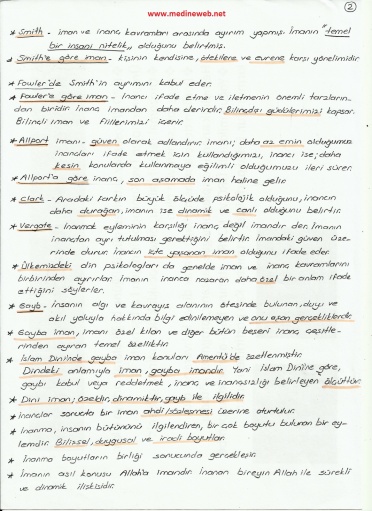 www.medineweb.net
2
* Smith - iman ve inanç kavramları arasında ayırım yapmış. İmanın "temel
bir insani nitelik" olduğunu belirtmiş.
* Smith'e göre iman - kişinin kendisine, ötekilere ve evrene karşı yönelimidir.
* Fowler'de Smith'in ayrımını kabul eder.
* Fowler'a göre iman - İnancı ifade etme ve iletmenin önemli tarzların-
dan biridir. İnanç imandan daha derindir. Bilinçdışı güdülerimizi kapsar.
Bilinçli iman ve fiillerimizi içerir.
* Allport imanı - güven olarak adlandırır. imanı; daha az emin olduğumuz
inançları ifade etmek için kullandığımızı, inancı ise; daha
kesin konularda kullanmaya eğilimli olduğumuzu ileri sürer.
* Allport'a göre inanç, son aşamada iman haline gelir.
* Clark - Aradaki farkın büyük ölçüde psikolojik olduğunu, inancın
daha durağan, imanın ise dinamik ve canlı olduğunu belirtir.
* Vergote - inanmak eyleminin karşılığı inanç değil imandır der. İmanın
inançtan ayrı tutulması gerektiğini belirtir. İmandaki güven üze-
rinde durur. İnancın içte yaşanan iman olduğunu ifade eder.
* Ülkemizdeki din psikologları da genelde iman ve inanç kavramlarını
birbirinden ayırırlar. İmanın inanca nazaran daha özel bir anlam ifade
ettiğini söylerler.
* Gayb - İnsanın algı ve kavrayış alanının ötesinde bulunan, duyu ve
akıl yoluyla hakkında bilgi edinilemeyen ve onu aşan gerçekliklerdir.
* Gayba iman, imanı özel kılan ve diğer bütün beşeri inanç çeşitle-
rinden ayıran temel özelliktir.
* İslam Dininde gayba iman konuları Amentü'de özetlenmiştir.
Dindeki anlamıyla iman, gayba imandır. Yani İslam Dini'ne göre,
gaybı kabul veya reddetmek, inanç ve inançsızlığı belirleyen ölçüttür.
* Dini iman; özeldir, dinamiktir, gayb ile ilgilidir.
* İnançlar sonuçta bir iman ahdi/sözleşmesi üzerine oturtulur.
* İnanma, insanın bütününü ilgilendiren, bir çok boyutu bulunan bir ey-
lemdir. Bilişsel, duygusal ve iradi boyutlar.
* İnanma boyutların birliği sonucunda gerçekleşir.
* İmanın asıl konusu Allah'a imandır. İnanan bireyin Allah ile sürekli
ve dinamik ilişkisidir.